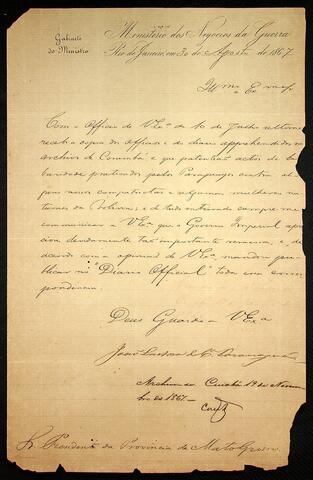 Gabinete
do Ministro
Ministerio dos Negocios da Guerra
Rio de Janeiro, em 30 de Agosto de 1867.
Illmo. Exmo. Snr.
Com o Officio de VExa. de 10 de Julho ultimo
recebi a copia dos officios e do diario apprehendidos no
archivo de Corumbá e que patenteão actos de bar
baridade praticados pelos Paraguayos contra al
guns nossos compatriotas e algumas mulheres na
turaes da Bolivia; e de tudo inteirado cumpre me
communicar a VExa. que o Governo Imperial apre
ciou devidamente tão importante remessa, e, de
accordo com a opinião de VExa. mandou pu
blicar no "Diario Official" toda essa corres
pondencia.
Deus Guarde a VExa
João Lustosa da Ca. Paranaguá
Archive-se Cuiabá 19 de Novem
bro de 1867.
Sr. Presidente da Provincia de Mato Grosso